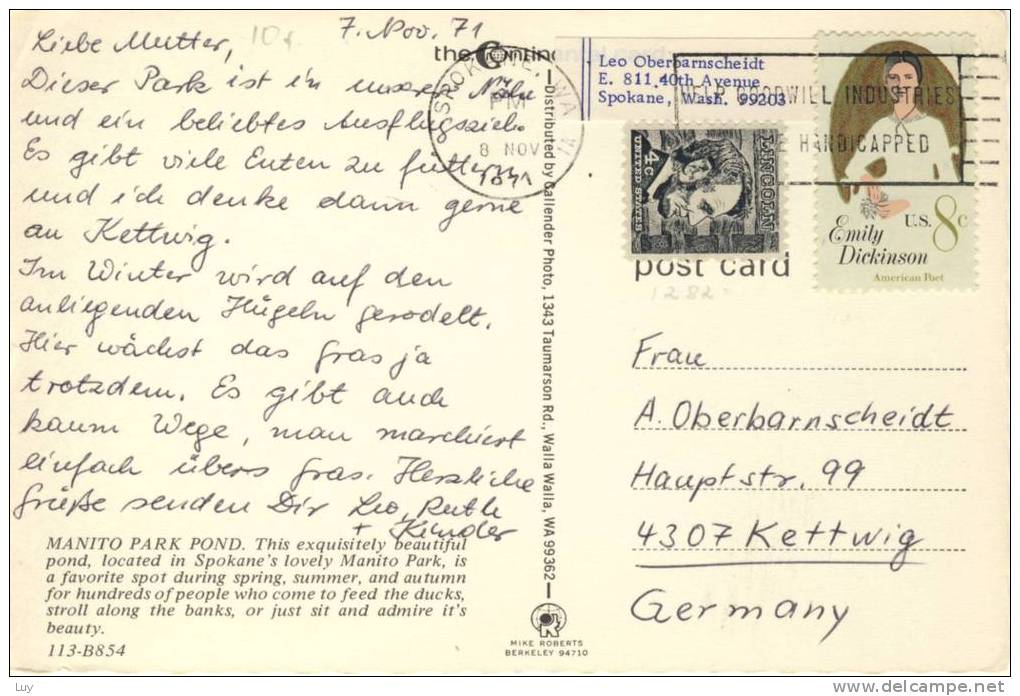 7. Nov. 71
Liebe Mutter,
Dieser Park ist in unserer Nähe
und ein beliebtes Ausflugsziel.
Es gibt viele Enten zu füttern
und ich denke dann gerne
an Kettwig.
Im Winter wird auf den
anliegenden Hügeln gerodelt.
Hier wächst das Gras ja
trotzdem. Es gibt auch
kaum Wege, man marschiert
einfach übers Gras. Herzliche
Grüße senden Dir Leo, Ruth
+ Kinder
MANITO PARK POND. This exquisitely beautiful
pond, located in Spokane's lovely Manito Park, is
a favorite spot during spring, summer, and autumn
for hundreds of people who come to feed the ducks,
stroll along the banks, or just sit and admire it's
beauty.
113-B854
Distributed by Callender Photo, 1343 Taumarson Rd., Walla Walla, WA 99362
MIKE ROBERTS
BERKELEY 94710
SPOKANE, WA
PM
8 NOV
1971
Leo Oberbarnscheidt
E. 811 40th Avenue
Spokane, Wash. 99203
HELP GOODWILL INDUSTRIES
HANDICAPPED
LINCOLN
4c
UNITED STATES
U.S. 8c
Emily
Dickinson
American Poet
post card
1282
Frau
A. Oberbarnscheidt
Hauptstr. 99
4307 Kettwig
Germany
Luy
delcampe.net